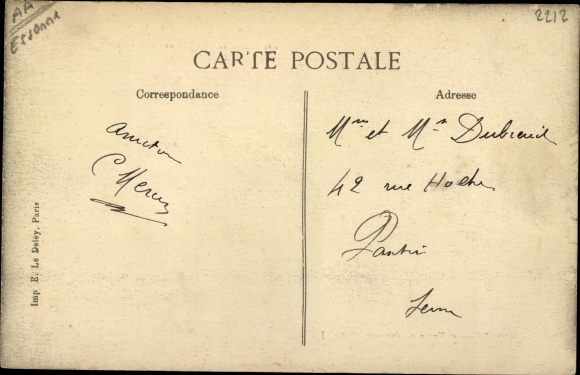 AA
ESSONNE
2212
CARTE POSTALE
Correspondance
Adresse
Amitiés
Mme et Mr Dubreuil
42 rue Hoche
Pantin
Seine
Imp E. Le Deley, Paris